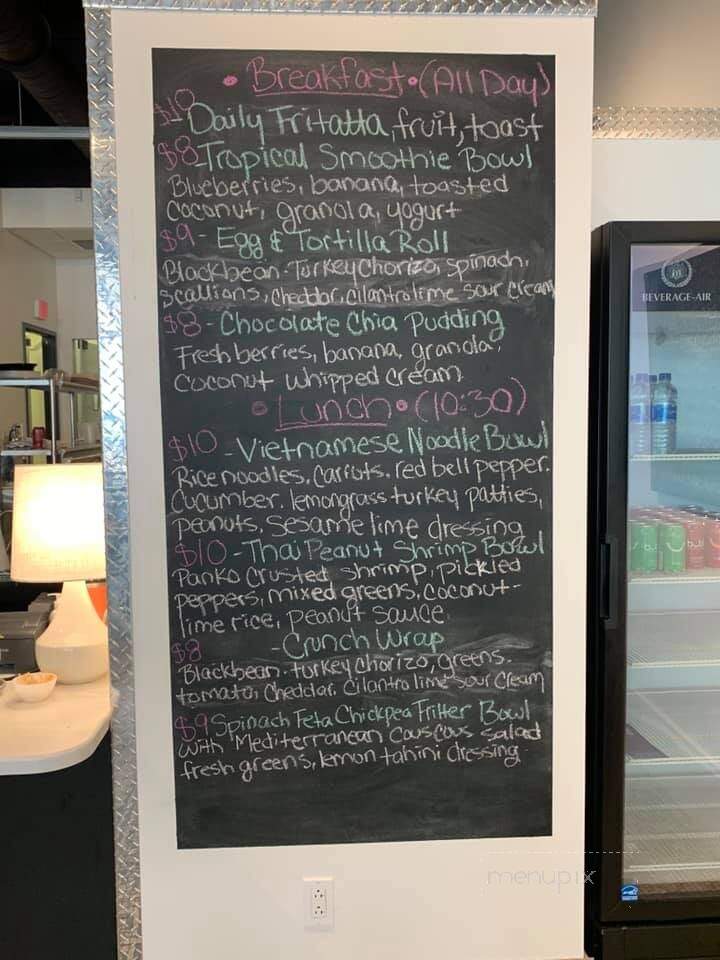 • Breakfast • (All Day)
$10
- Daily Fritatta, fruit, toast
$8 - Tropical Smoothie Bowl
Blueberries, banana, toasted
coconut, granola, yogurt
$9 - Egg & Tortilla Roll
Blackbean-Turkey Chorizo, spinach,
scallians, cheddar, cilantro lime sour cream
$8 - Chocolate Chia Pudding
Fresh berries, banana, granola,
coconut whipped cream
• Lunch • (10:30)
$10 - Vietnamese Noodle Bowl
Rice noodles, carrots, red bell pepper.
Cucumber. lemongrass turkey patties,
peanuts. sesame lime dressing
$10 - Thai Peanut Shrimp Bowl
Panko crusted shrimp, pickled
peppers, mixed greens, coconut-
lime rice, peanut sauce.
$8 - Crunch Wrap
Blackbean-turkey chorizo, greens.
tomato, cheddar. cilantro lime sour cream
$9 Spinach Feta Chickpea Fritter Bowl
with Mediterranean couscous salad
fresh greens, lemon tahini dressing
BEVERAGE-AIR
menupix